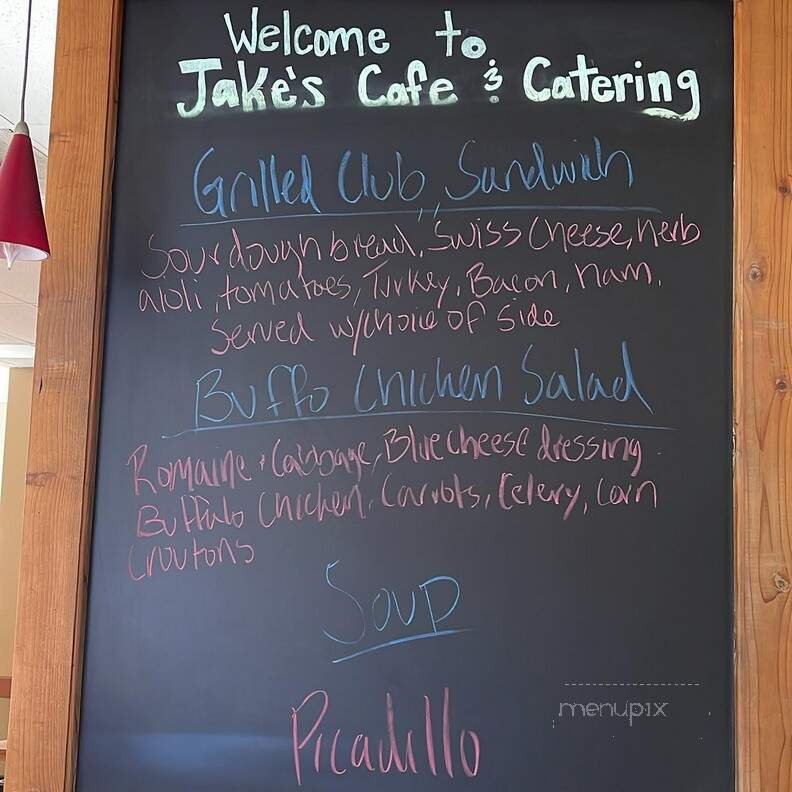 Welcome to
Jake's Cafe & Catering
Grilled Club Sandwich
Sourdough bread, Swiss Cheese, herb
aioli, tomatoes, Turkey, Bacon, ham,
Served w/choice of side
Buffo Chicken Salad
Romaine + Cabbage, Blue cheese dressing
Buffalo Chicken, Carrots, Celery, Corn
Croutons
Soup
Picadillo
menupix